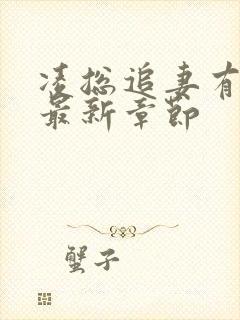 凌总追妻有
最新章节
蟹子